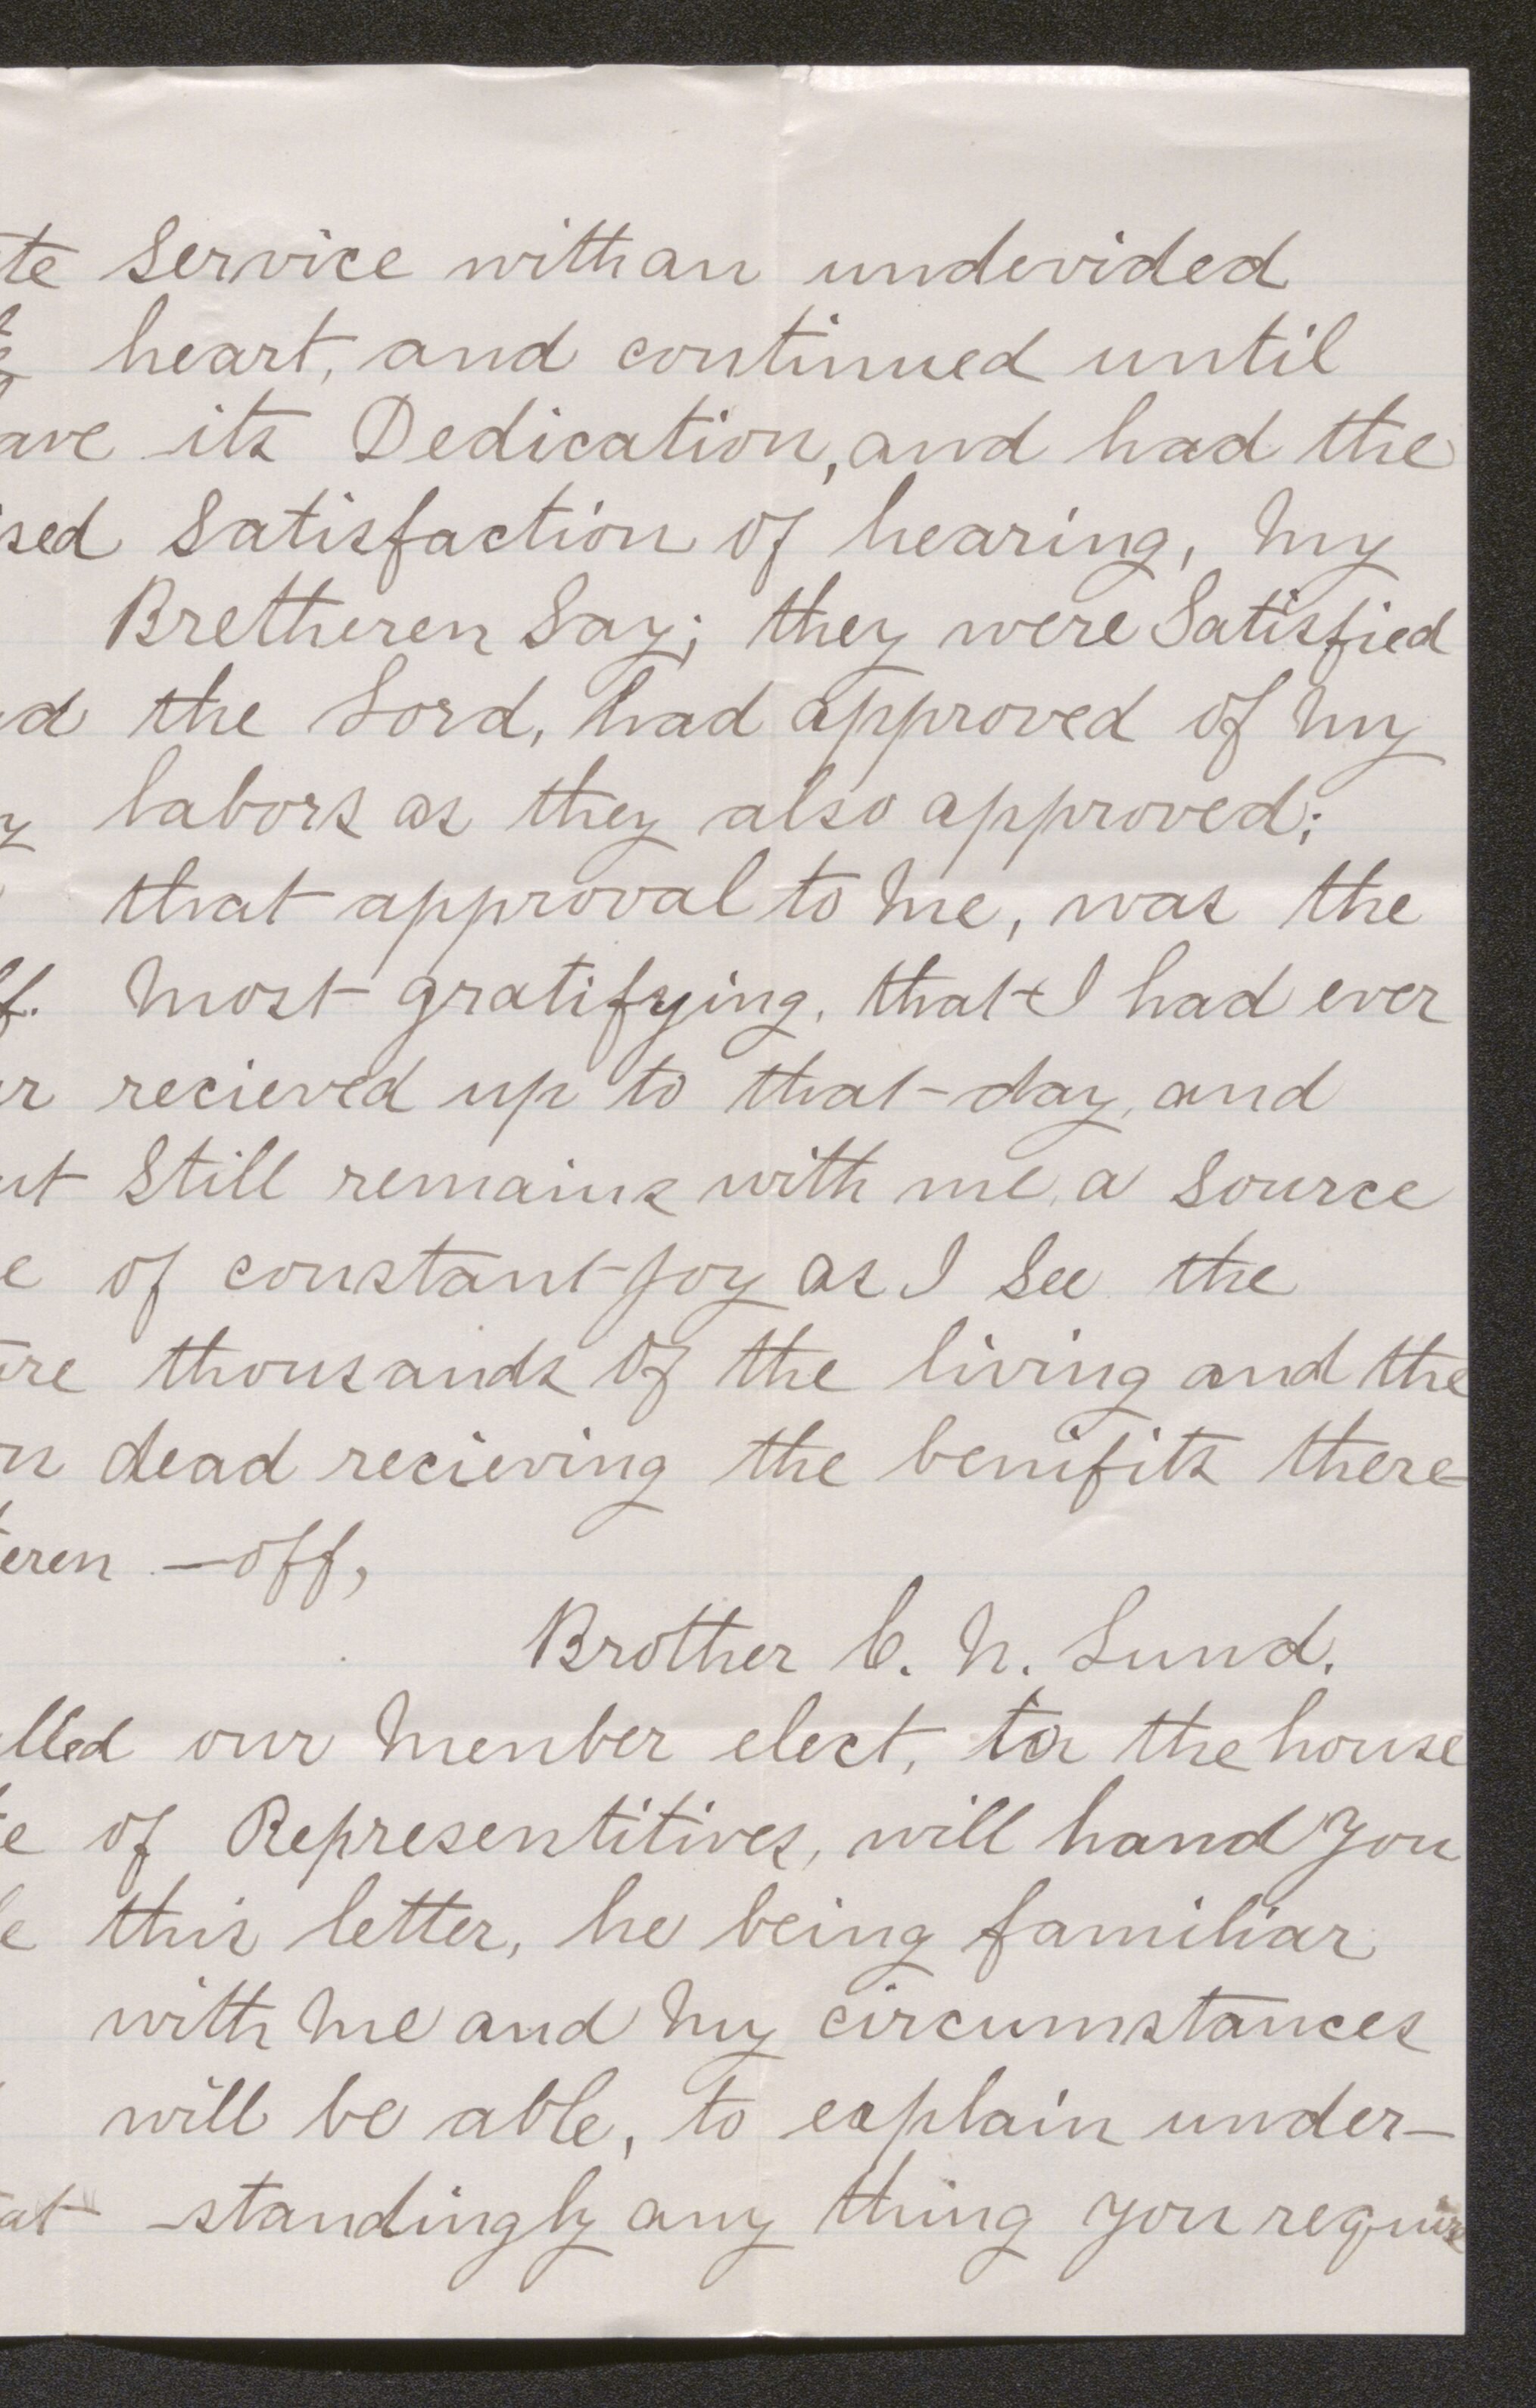 te Service with an undevided
heart, and continued until
ave its Dedication, and had the
sed Satisfaction of hearing, My
Bretheren Say; they were Satisfied
d the Lord, had approved of My
labors as they also approved;
that approval to Me, was the
f. Most gratifying, that I had ever
r recieved up to that day, and
ut Still remains with me, a Source
e of constant joy as I See the
re thousands of the living and the
n dead recieving the benifits there=
eren -off,
Brother C. N. Lund.
lled our Member elect, to the house
e of Representitives, will hand you
e this letter, he being familiar
with Me and My circumstances
will be able, to explain under-
at -standingly any thing you require